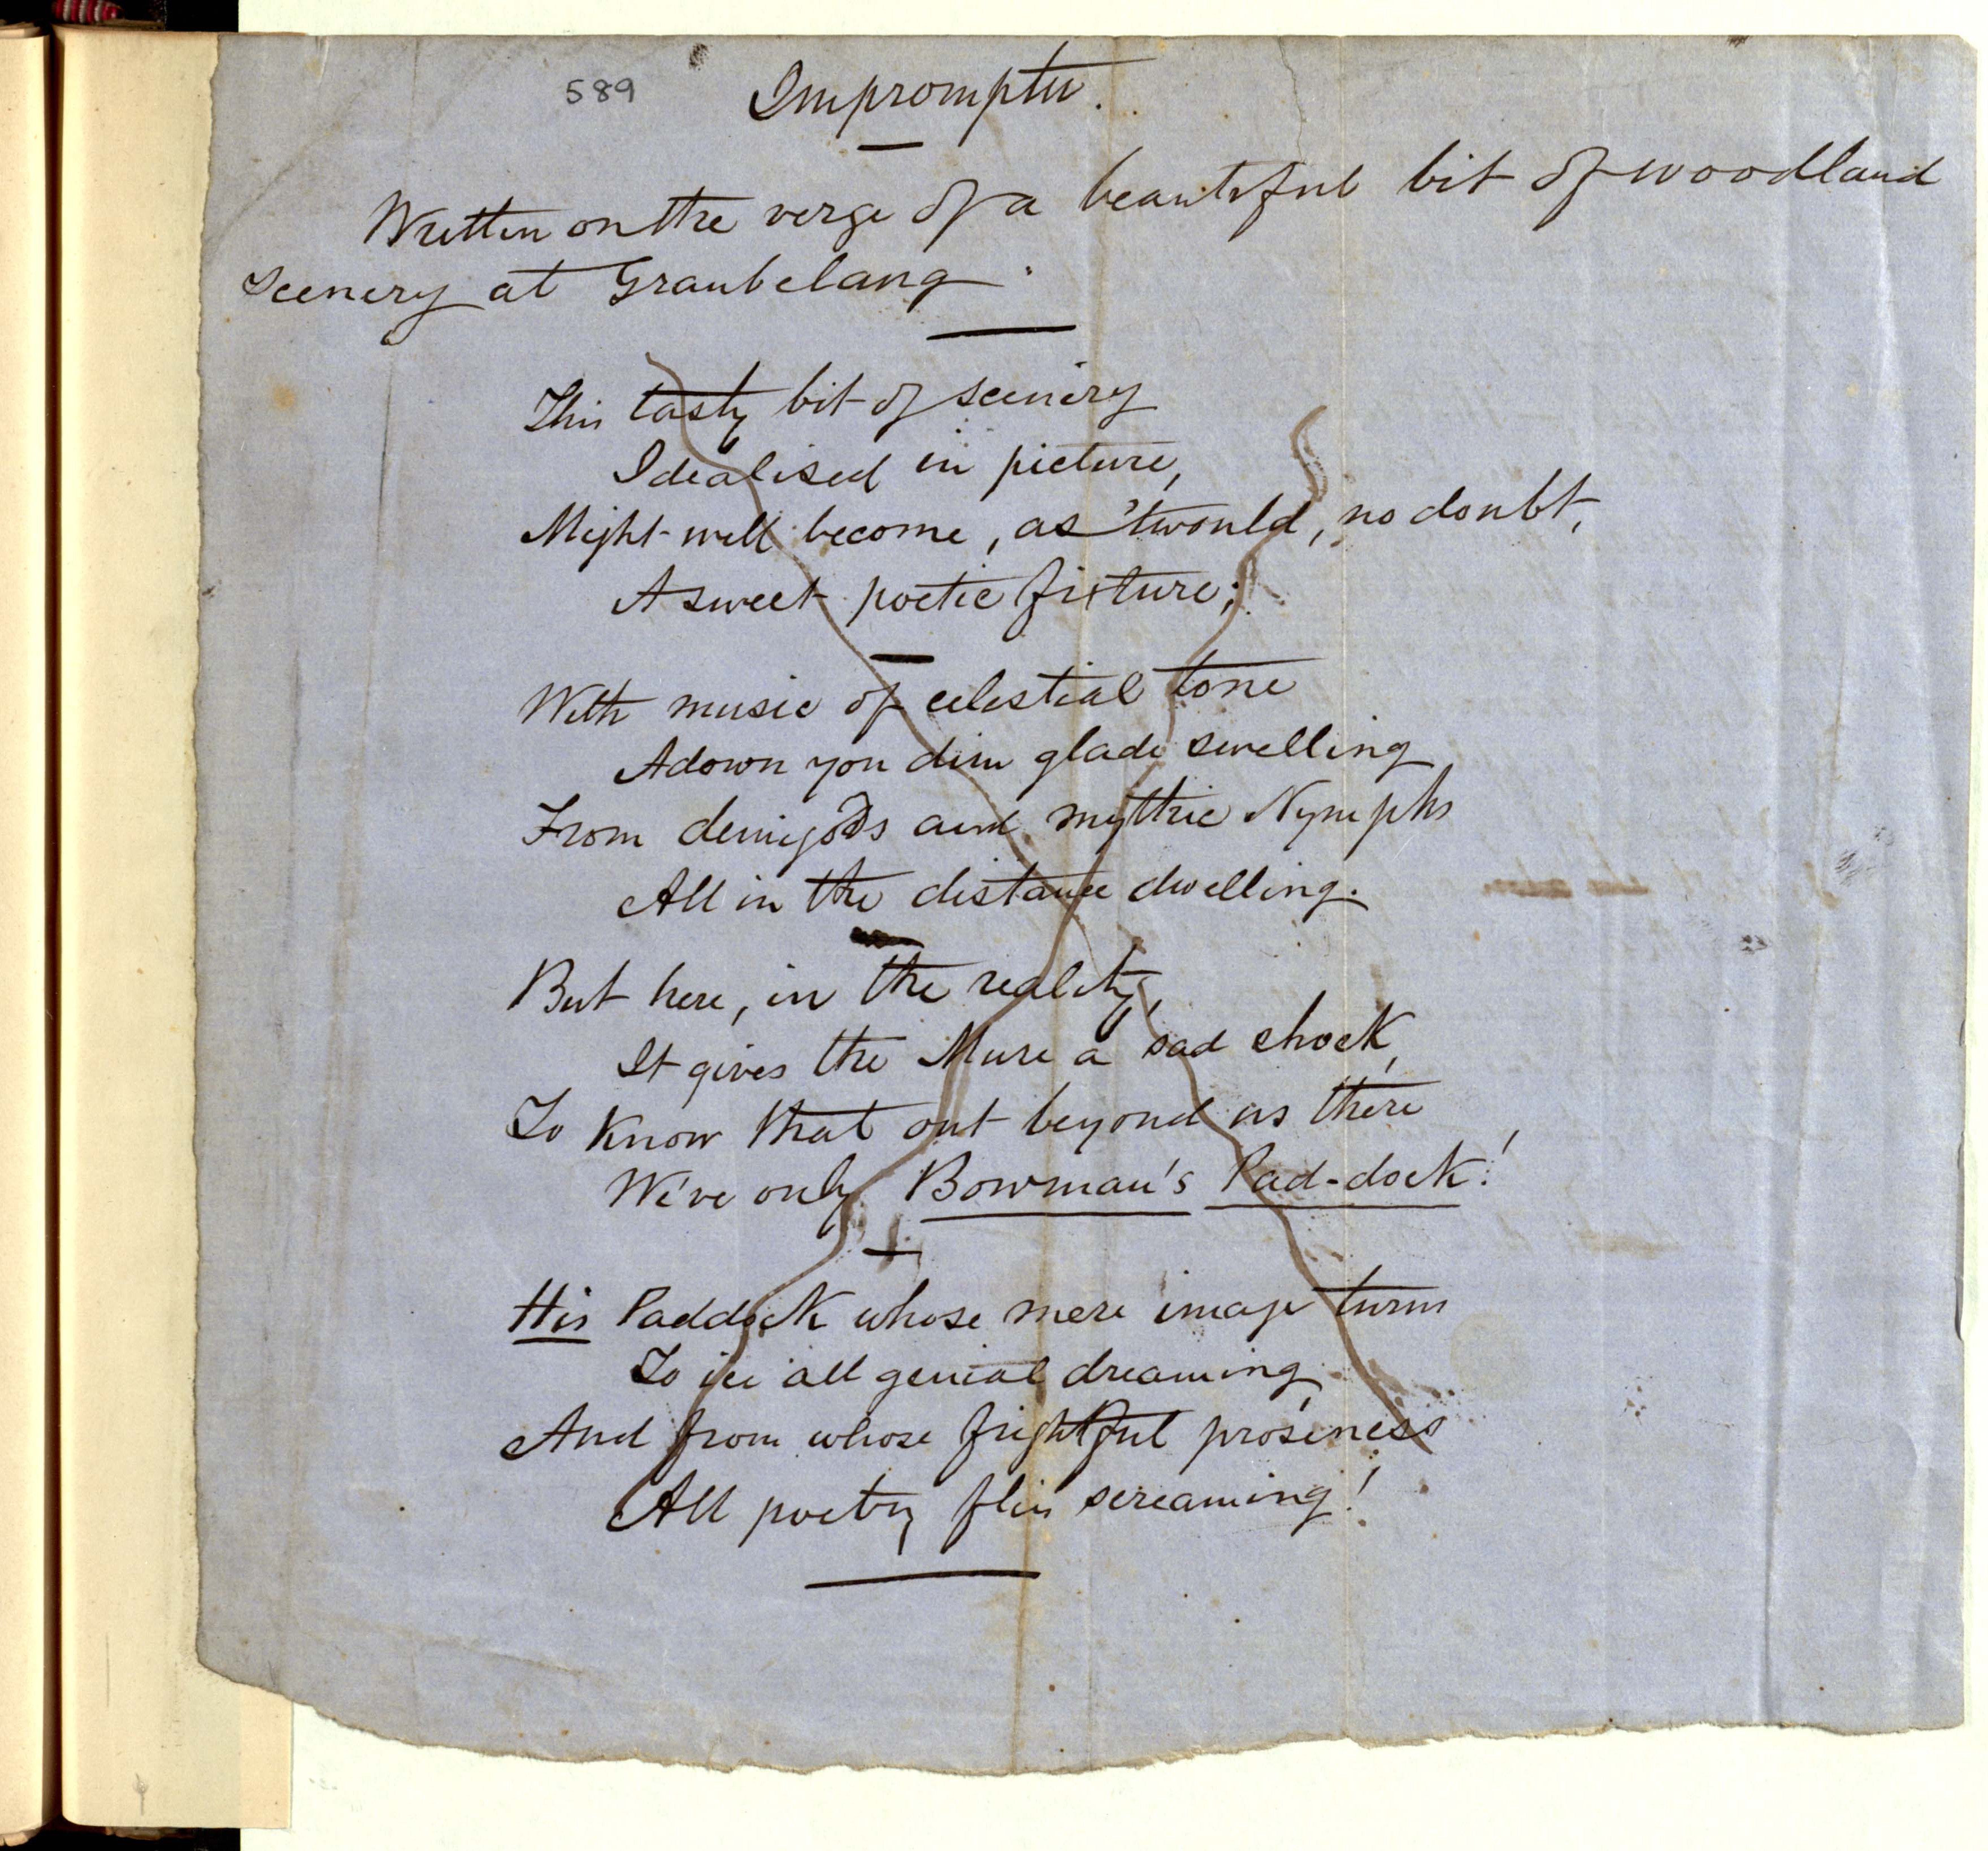 589
Impromptu.
Written on the verge of a beautiful bit of woodland
scenery at Graubelang.
This tasty bit of scenery
Idealised in picture,
Might well become, as 'twould, no doubt,
A sweet poetic fixture;
With music of celestial tone
Adown yon dim glade swelling
From demigods and mythic Nymphs
All in the distance dwelling.
But here, in the reality,
It gives the Muse a sad shock,
To know that out beyond us there
We've only Bowman's Pad-dock!
His Paddock whose mere image turns
To ice all genial dreaming,
And from whose frightful prosiness
All poetry flies screaming!